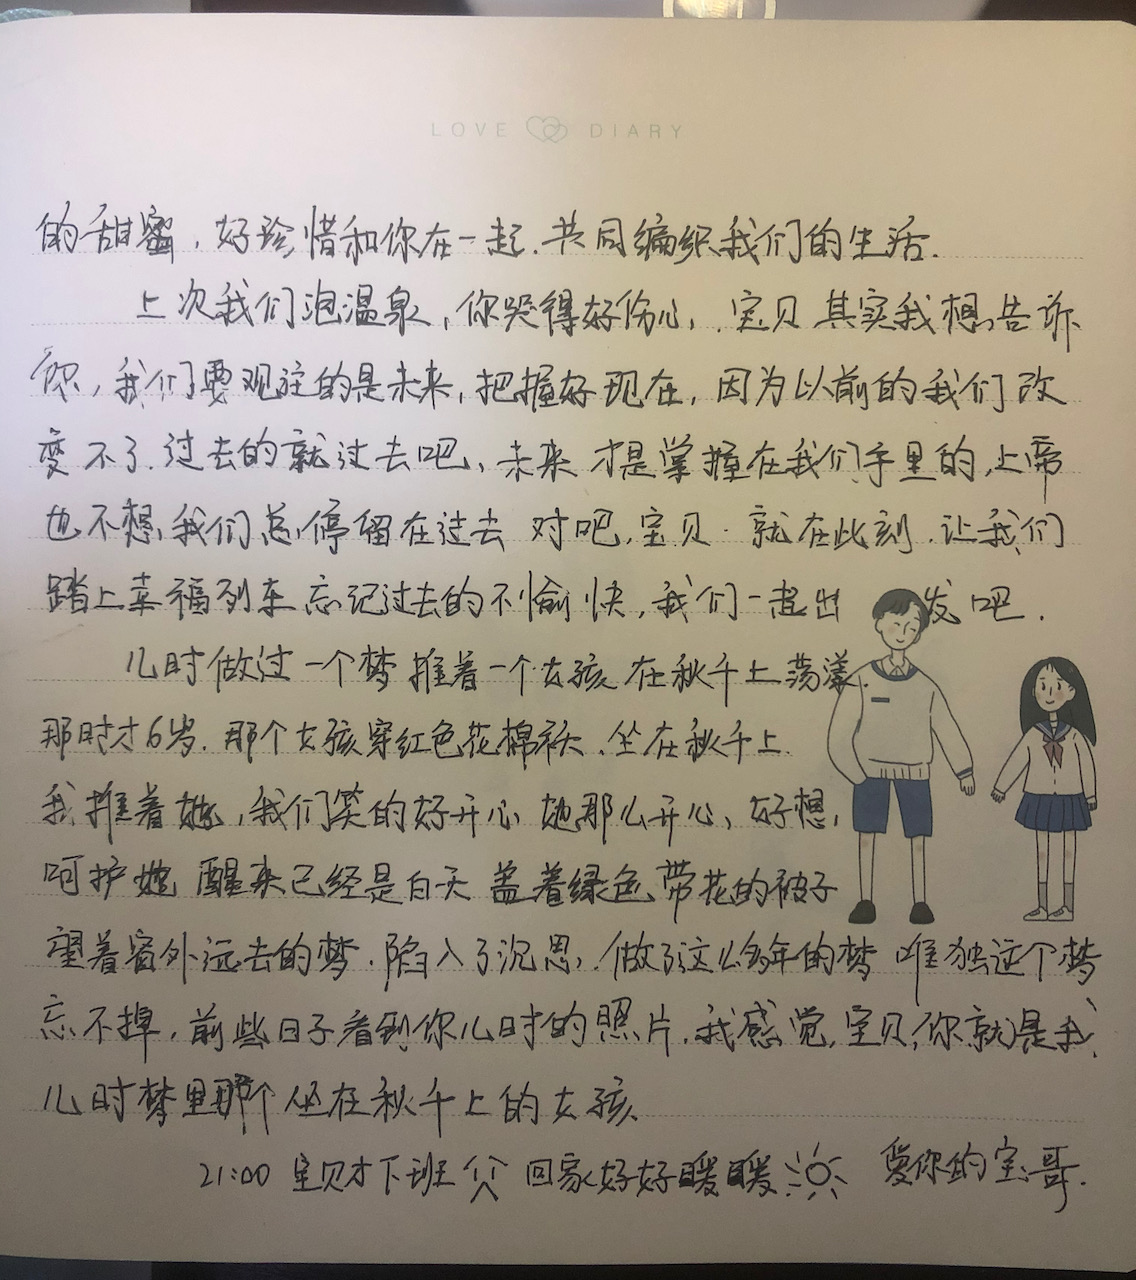 LOVE DIARY
的甜蜜，好珍惜和你在一起.共同编织我们的生活.
上次我们泡温泉，你哭得好伤心，宝贝 其实我想告诉
你，我们要观注的是未来，把握好现在，因为以前的我们改
变不了.过去的就过去吧、未来才是掌握在我们手里的，上帝
也不想我们总停留在过去 对吧，宝贝.就在此刻.让我们
踏上幸福列车忘记过去的不愉快，我们一起出发吧.
儿时做过一个梦推着一个女孩在秋千上荡漾.
那时才6岁.那个女孩穿红色花棉袄.坐在秋千上.
我推着她，我们笑的好开心她那么开心、好想，
呵护她 醒来已经是白天 盖着绿色带花的被子
望着窗外远去的梦.陷入了沉思，做了这么多年的梦 唯独这个梦
忘不掉，前些日子看到你儿时的照片，我感觉，宝贝，你就是我
儿时梦里那个坐在秋千上的女孩
21:00 宝贝才下班 回家好好暖暖 爱你的宝哥.